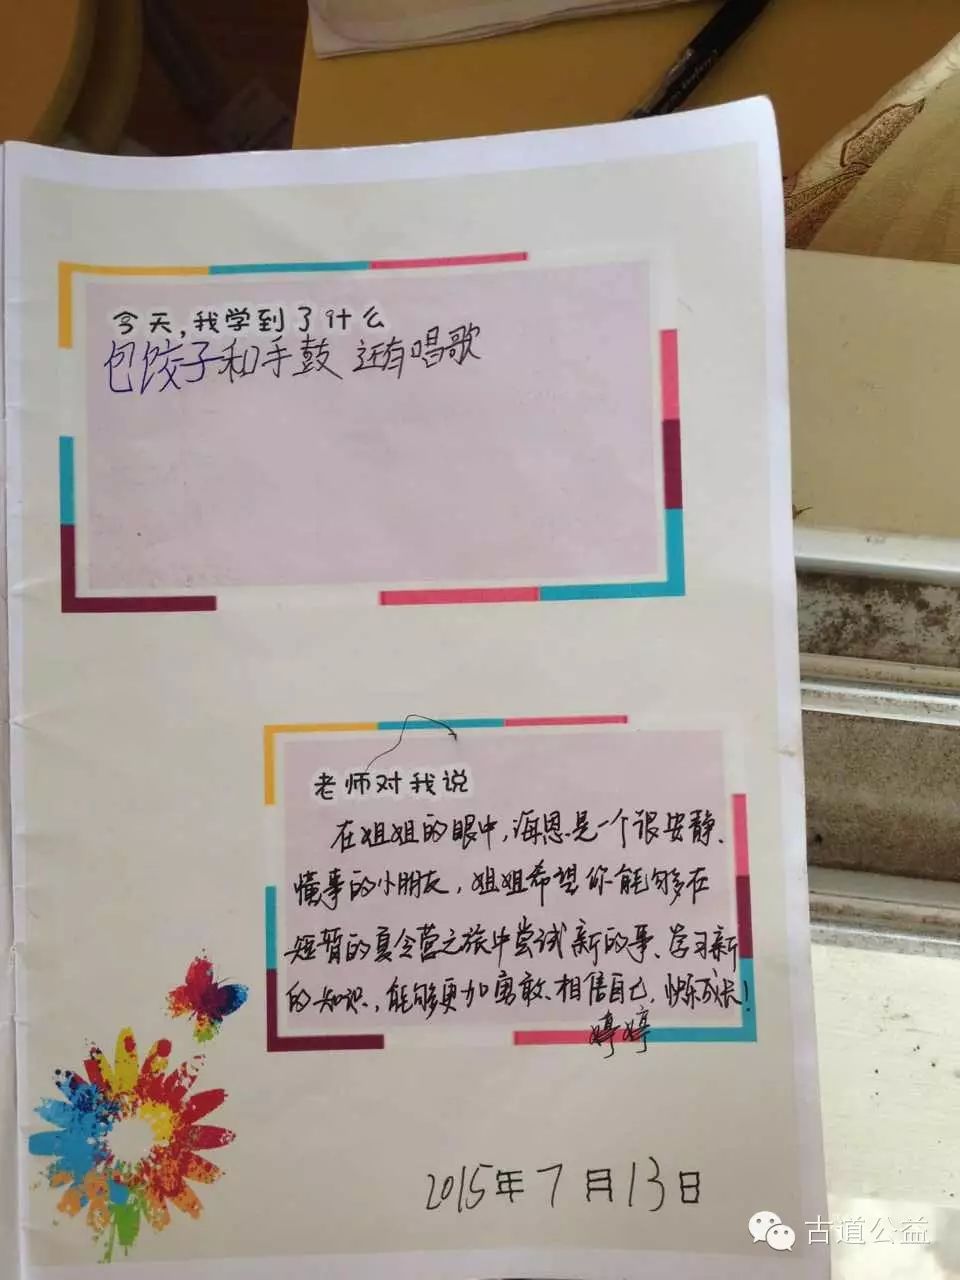 今天,我学到了什么
包饺子和手鼓 还有唱歌
老师对我说
在姐姐的眼中,海恩是一个很安静、
懂事的小朋友,姐姐希望你能够在
短暂的夏令营之旅中尝试新的事、学习新
的知识,能够更加勇敢、相信自己,快乐成长!
婷婷
2015年7月13日
古道公益